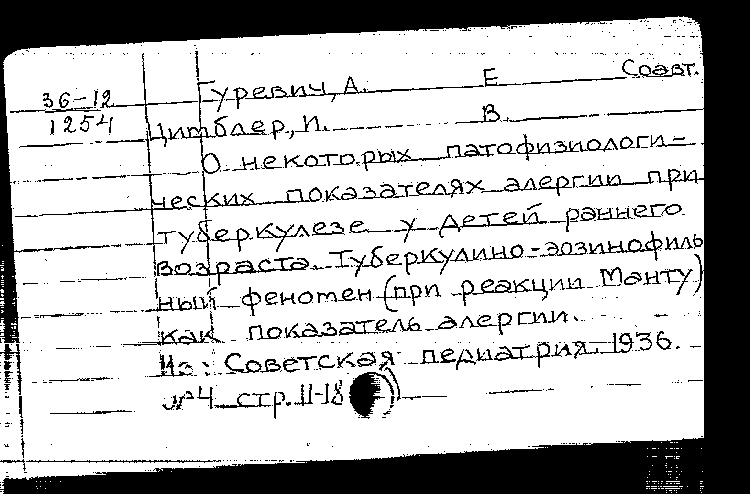 36-12 Гуревич, А. Е Соавт.
1254 Цитблер, И. В.
О некоторых патофизиологи-
ческих показателях алергии при
туберкулезе у детей раннего
возраста. Туберкулино-эозинофиль
ный феномен (при реакции Манту)
как показатель алергии.
Из: Советская педиатрия. 1936.
№4 стр. 11-18